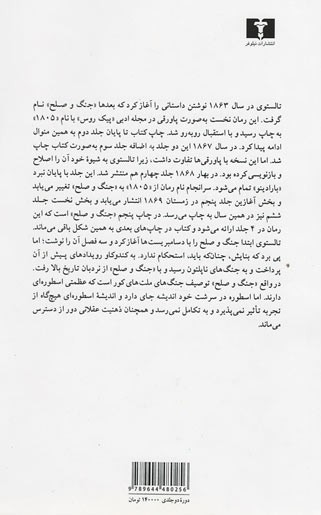 انتشارات نیلوفر
تالستوی در سال ۱۸۶۳ نوشتن داستانی را آغاز کرد که بعدها «جنگ و صلح» نام
گرفت. این رمان نخست به‌صورت پاورقی در مجله ادبی «پیک روس» با نام «۱۸۰۵»
به چاپ رسید و با استقبال روبه‌رو شد. چاپ کتاب تا پایان جلد دوم به همین منوال
ادامه پیدا کرد. در سال ۱۸۶۷ این دو جلد به اضافه جلد سوم به‌صورت کتاب چاپ
شد. اما این نسخه با پاورقی‌ها تفاوت داشت، زیرا تالستوی به شیوهٔ خود آن را اصلاح
و بازنویسی کرده بود. بهار ۱۸۶۸ جلد چهارم هم منتشر شد. این جلد با پایان نبرد
«بارادینو» تمام می‌شود. سرانجام نام رمان از «۱۸۰۵» به «جنگ و صلح» تغییر می‌یابد
و بخش آغازین جلد پنجم در زمستان ۱۸۶۹ انتشار می‌یابد و بخش نخست جلد
ششم نیز در همین سال به چاپ می‌رسد. در چاپ پنجم «جنگ و صلح» است که این
رمان در ۴ جلد ارائه می‌شود و کتاب در چاپ‌های بعدی به همین شکل باقی می‌ماند.
تالستوی ابتدا جنگ و صلح را با دسامبریست‌ها آغاز کرد و سه فصل آن را نوشت؛ اما
پی برد که بنایش، چنان‌که باید، استحکام ندارد. به کندوکاو رویدادهای پیش از آن
پرداخت و به جنگ‌های ناپلئون رسید و با «جنگ و صلح» از نردبان تاریخ بالا رفت.
درواقع «جنگ و صلح» توصیف جنگ‌های ملت‌های کور است که عظمتی اسطوره‌ای
دارند. اما اسطوره در سرشت خود اندیشه جای دارد و اندیشهٔ اسطوره‌ای هیچ‌گاه از
تجربه تأثیر نمی‌پذیرد و به تکامل نمی‌رسد و همچنان ذهنیت عقلانی دور از دسترس
می‌ماند.
9 789644 480256
دورهٔ دوجلدی ۱۴۰۰۰۰ تومان